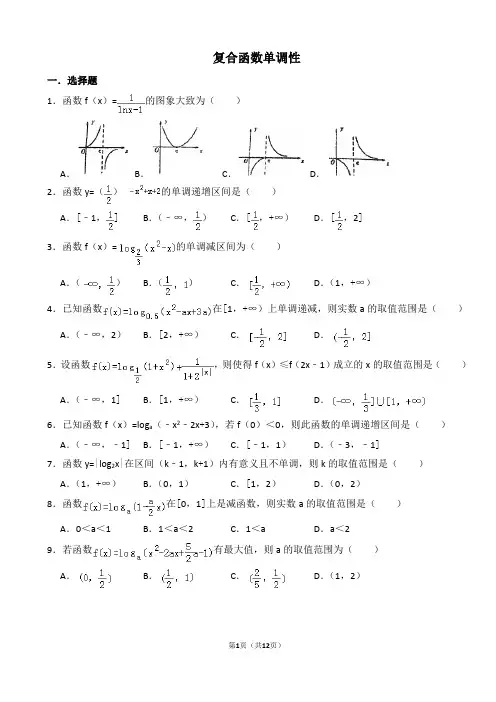 复合函数单调性
一．选择题
1．函数 f（x）=\frac{1}{lnx-1}的图象大致为（　　）
A．　B．　C．　D．
2．函数 y=（\frac{1}{2}）^{-x^2+x+2}的单调递增区间是（　　）
A．[﹣1，\frac{1}{2}]　B．（﹣∞，\frac{1}{2}）　C．[\frac{1}{2}，+∞）　D．[\frac{1}{2}，2]
3．函数 f（x）=log_{\frac{2}{3}}(x^2-x)的单调减区间为（　　）
A．（-∞，\frac{1}{2}）　B．（\frac{1}{2}，1）　C．[\frac{1}{2}，+∞)　D．（1，+∞）
4．已知函数f(x)=log_{0.5}(x^2-ax+3a)在[1，+∞）上单调递减，则实数 a 的取值范围是（　　）
A．（﹣∞，2）　B．[2，+∞）　C．[-\frac{1}{2}，2]　D．(-\frac{1}{2}，2]
5．设函数f(x)=log_{\frac{1}{2}}(1+x^2)+\frac{1}{1+2^{|x|}}，则使得 f（x）≤f（2x﹣1）成立的 x 的取值范围是（　　）
A．（﹣∞，1]　B．[1，+∞）　C．[\frac{1}{3}，1]　D．(-∞，\frac{1}{3}]∪[1，+∞)
6．已知函数 f（x）=log_a（﹣x^2﹣2x+3），若 f（0）<0，则此函数的单调递增区间是（　　）
A．（﹣∞，﹣1]　B．[﹣1，+∞）　C．[﹣1，1）　D．（﹣3，﹣1]
7．函数 y=|log_2x|在区间（k﹣1，k+1）内有意义且不单调，则 k 的取值范围是（　　）
A．（1，+∞）　B．（0，1）　C．[1，2）　D．（0，2）
8．函数f(x)=log_a(1-\frac{a}{2}x)在[0，1]上是减函数，则实数 a 的取值范围是（　　）
A．0<a<1　B．1<a<2　C．1<a　D．a<2
9．若函数f(x)=log_a(x^2-2ax+\frac{5}{2}a-1)有最大值，则 a 的取值范围为（　　）
A．(0，\frac{1}{2})　B．(\frac{1}{2}，1)　C．(\frac{2}{5}，\frac{1}{2})　D．（1，2）
第1页（共12页）